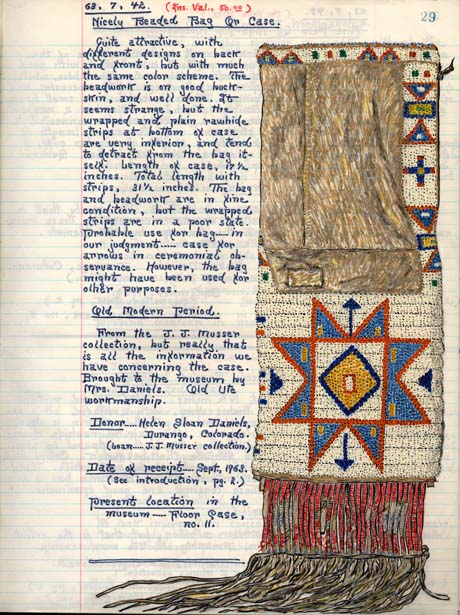 63. 7. 42. (Ins. Val., 50.00)
29
Nicely Beaded Bag Or Case.
Quite attractive, with
different designs on back
and front, but with much
the same color scheme. The
beadwork is on good buck-
skin, and well done. It
seems strange, but the
wrapped and plain rawhide
strips at bottom of case
are very inferior, and tend
to detract from the bag it-
self. Length of case,
inches. Total length with
strips, 31½ inches. The bag
and beadwork are in fine
condition, but the wrapped
strips are in a poor state.
Probable use for bag.... in
our judgment..... case for
arrows in ceremonial ob-
servance. However, the bag
might have been used for
other purposes.
Old Modern Period.
From the J. J. Musser
collection, but really that
is all the information we
have concerning the case.
Brought to the museum by
Mrs. Daniels. Old Ute
workmanship.
Donor.... Helen Sloan Daniels,
Durango, Colorado.
(Loan.... J. J. Musser collection.)
Date of receipt.... Sept, 1963.
(See introduction, pg. 2.)
Present location in the
museum.... Floor Case,
no. 11.